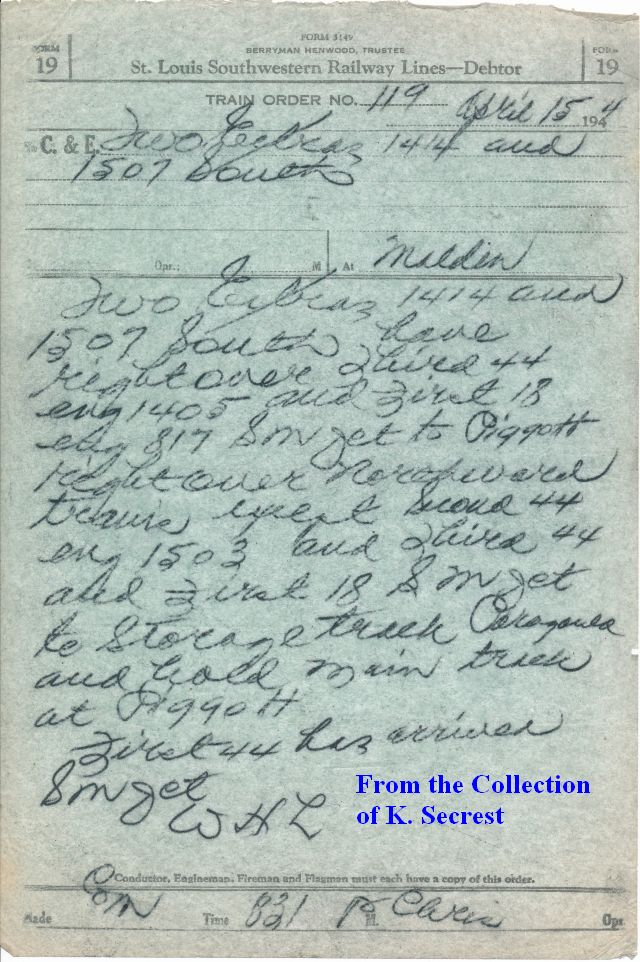 FORM 3149
FORM 19
BERRYMAN HENWOOD, TRUSTEE
St. Louis Southwestern Railway Lines—Debtor
FORM 19
TRAIN ORDER NO. 119 April 15 1944
To C. & E. Two Extras 1414 and
1507 South
Opr.; M At Malden
Two Extras 1414 and
1507 South have
right over Third 44
eng 1405 and First 18
eng 817 Sm Jct to Piggott
right over Northward
trains except Second 44
eng 1503 and Third 44
and First 18 Sm Jct
to Storage track Paragould
and hold main track
at Piggott
First 44 has arrived
Sm Jct
WHL
From the Collection
of K. Secrest
Conductor, Engineman, Fireman and Flagman must each have a copy of this order.
Made Com Time 831 P M. Chris Opr.